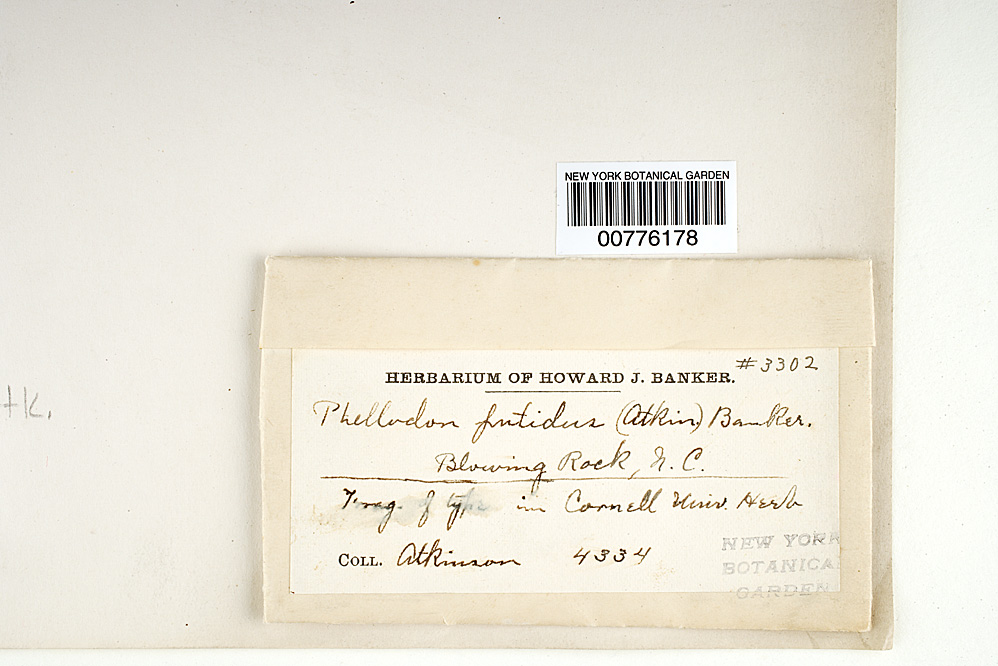 NEW YORK BOTANICAL GARDEN
00776178
#3302
HERBARIUM OF HOWARD J. BANKER.
Phellodon fœtidus (Atkin.) Banker.
Blowing Rock, N. C.
Frag. of type in Cornell Univ. Herb
COLL. Atkinson 4334
NEW YORK
BOTANICA
GARDEN
tk.